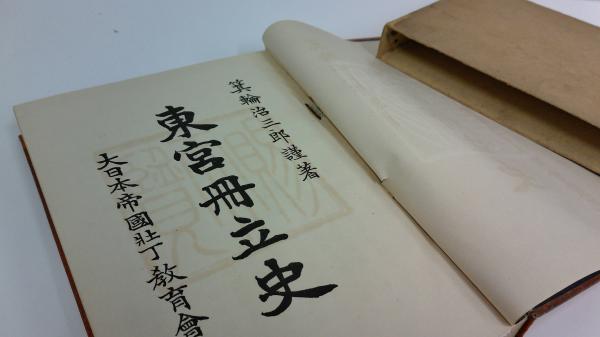 箕輪治三郎謹著
東宮冊立史
大日本帝國壯丁教育會